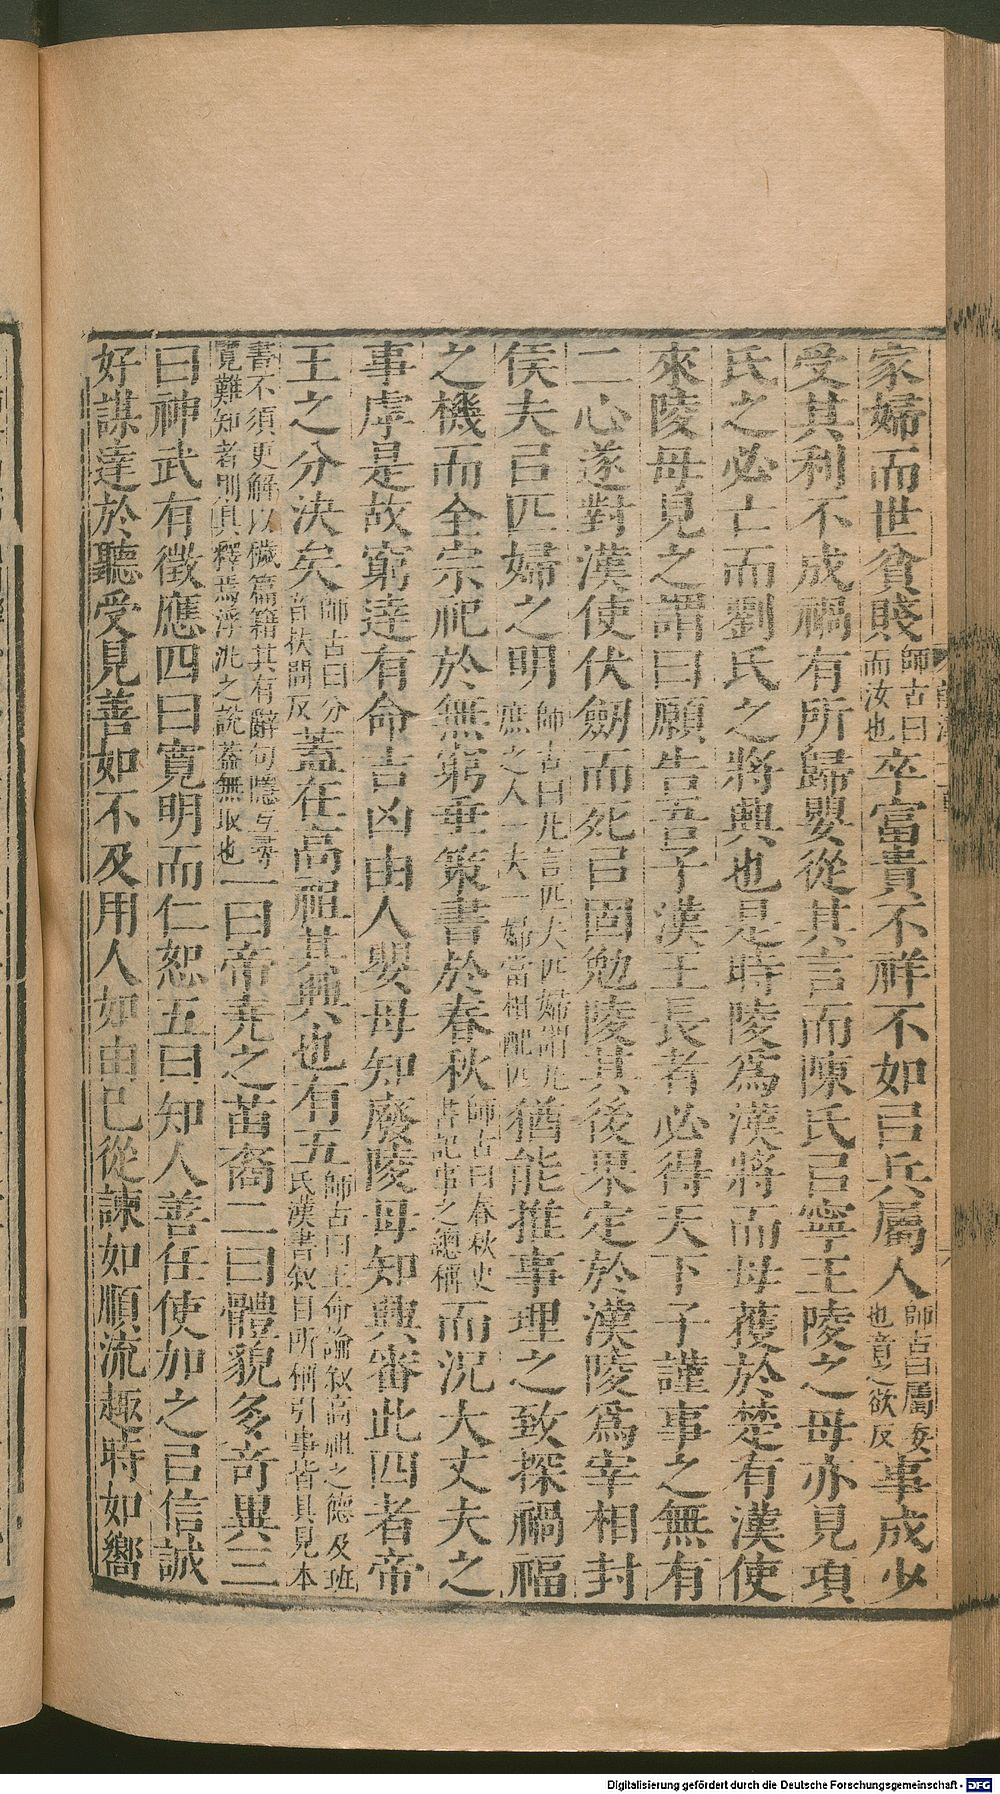 家婦而世貧賤師古曰而汝也卒富貴不祥不如㠯兵屬人師古曰屬委也音之欲反事成少
受其利不成禍有所歸嬰從其言而陳氏㠯寧王陵之母亦見項
氏之必亡而劉氏之將興也是時陵爲漢將而母獲於楚有漢使
來陵母見之謂曰願告吾子漢王長者必得天下子謹事之無有
二心遂對漢使伏劒而死㠯固勉陵其後果定於漢陵爲宰相封
侯夫㠯匹婦之明師古曰凡言匹夫匹婦謂凡庶之人一夫一婦當相配匹猶能推事理之致探禍福
之機而全宗祀於無窮垂策書於春秋師古曰春秋史書記事之總稱而況大丈夫之
事虖是故窮達有命吉凶由人嬰母知廢陵母知興審此四者帝
王之分決矣師古曰分音扶問反蓋在高祖其興也有五師古曰王命論叙高祖之德及班氏漢書叙目所稱引事皆具見本
書不須更解以穢篇籍其有辭句隱互尋覽難知者則具釋焉浮汎之說蓋無取也一曰帝堯之苗裔二曰體貌多奇異三
曰神武有徵應四曰寬明而仁恕五曰知人善任使加之㠯信誠
好謀達於聽受見善如不及用人如由己從諫如順流趣時如嚮
Digitalisierung gefördert durch die Deutsche Forschungsgemeinschaft - DFG